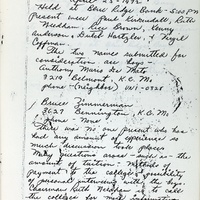 April 25 - 1972
Held at Blue Ridge Bank - 5:00 P.M.
Present were Paul Kirkendall, Ruth
Needham, Brown, Anny
Anderson & Dale Hartzler, & Hazel
Coffman.
The two names submitted for
consideration are boys -
Anthony Mario De Mato
3210 Belmont, K.C. Mo
phone (neighbor) WI1-0528
Bruce Zimmerman
3627 Bennington, K.C. Mo
phone - None
There was no one present who has
had any amount of experience so
much discussion took place.
Many question arose - such as - the
amount of tuition: methods of
payment to the college: possibility
of personal interview with the boys.
Chairman Ruth Needham is to call
the colleges for more information